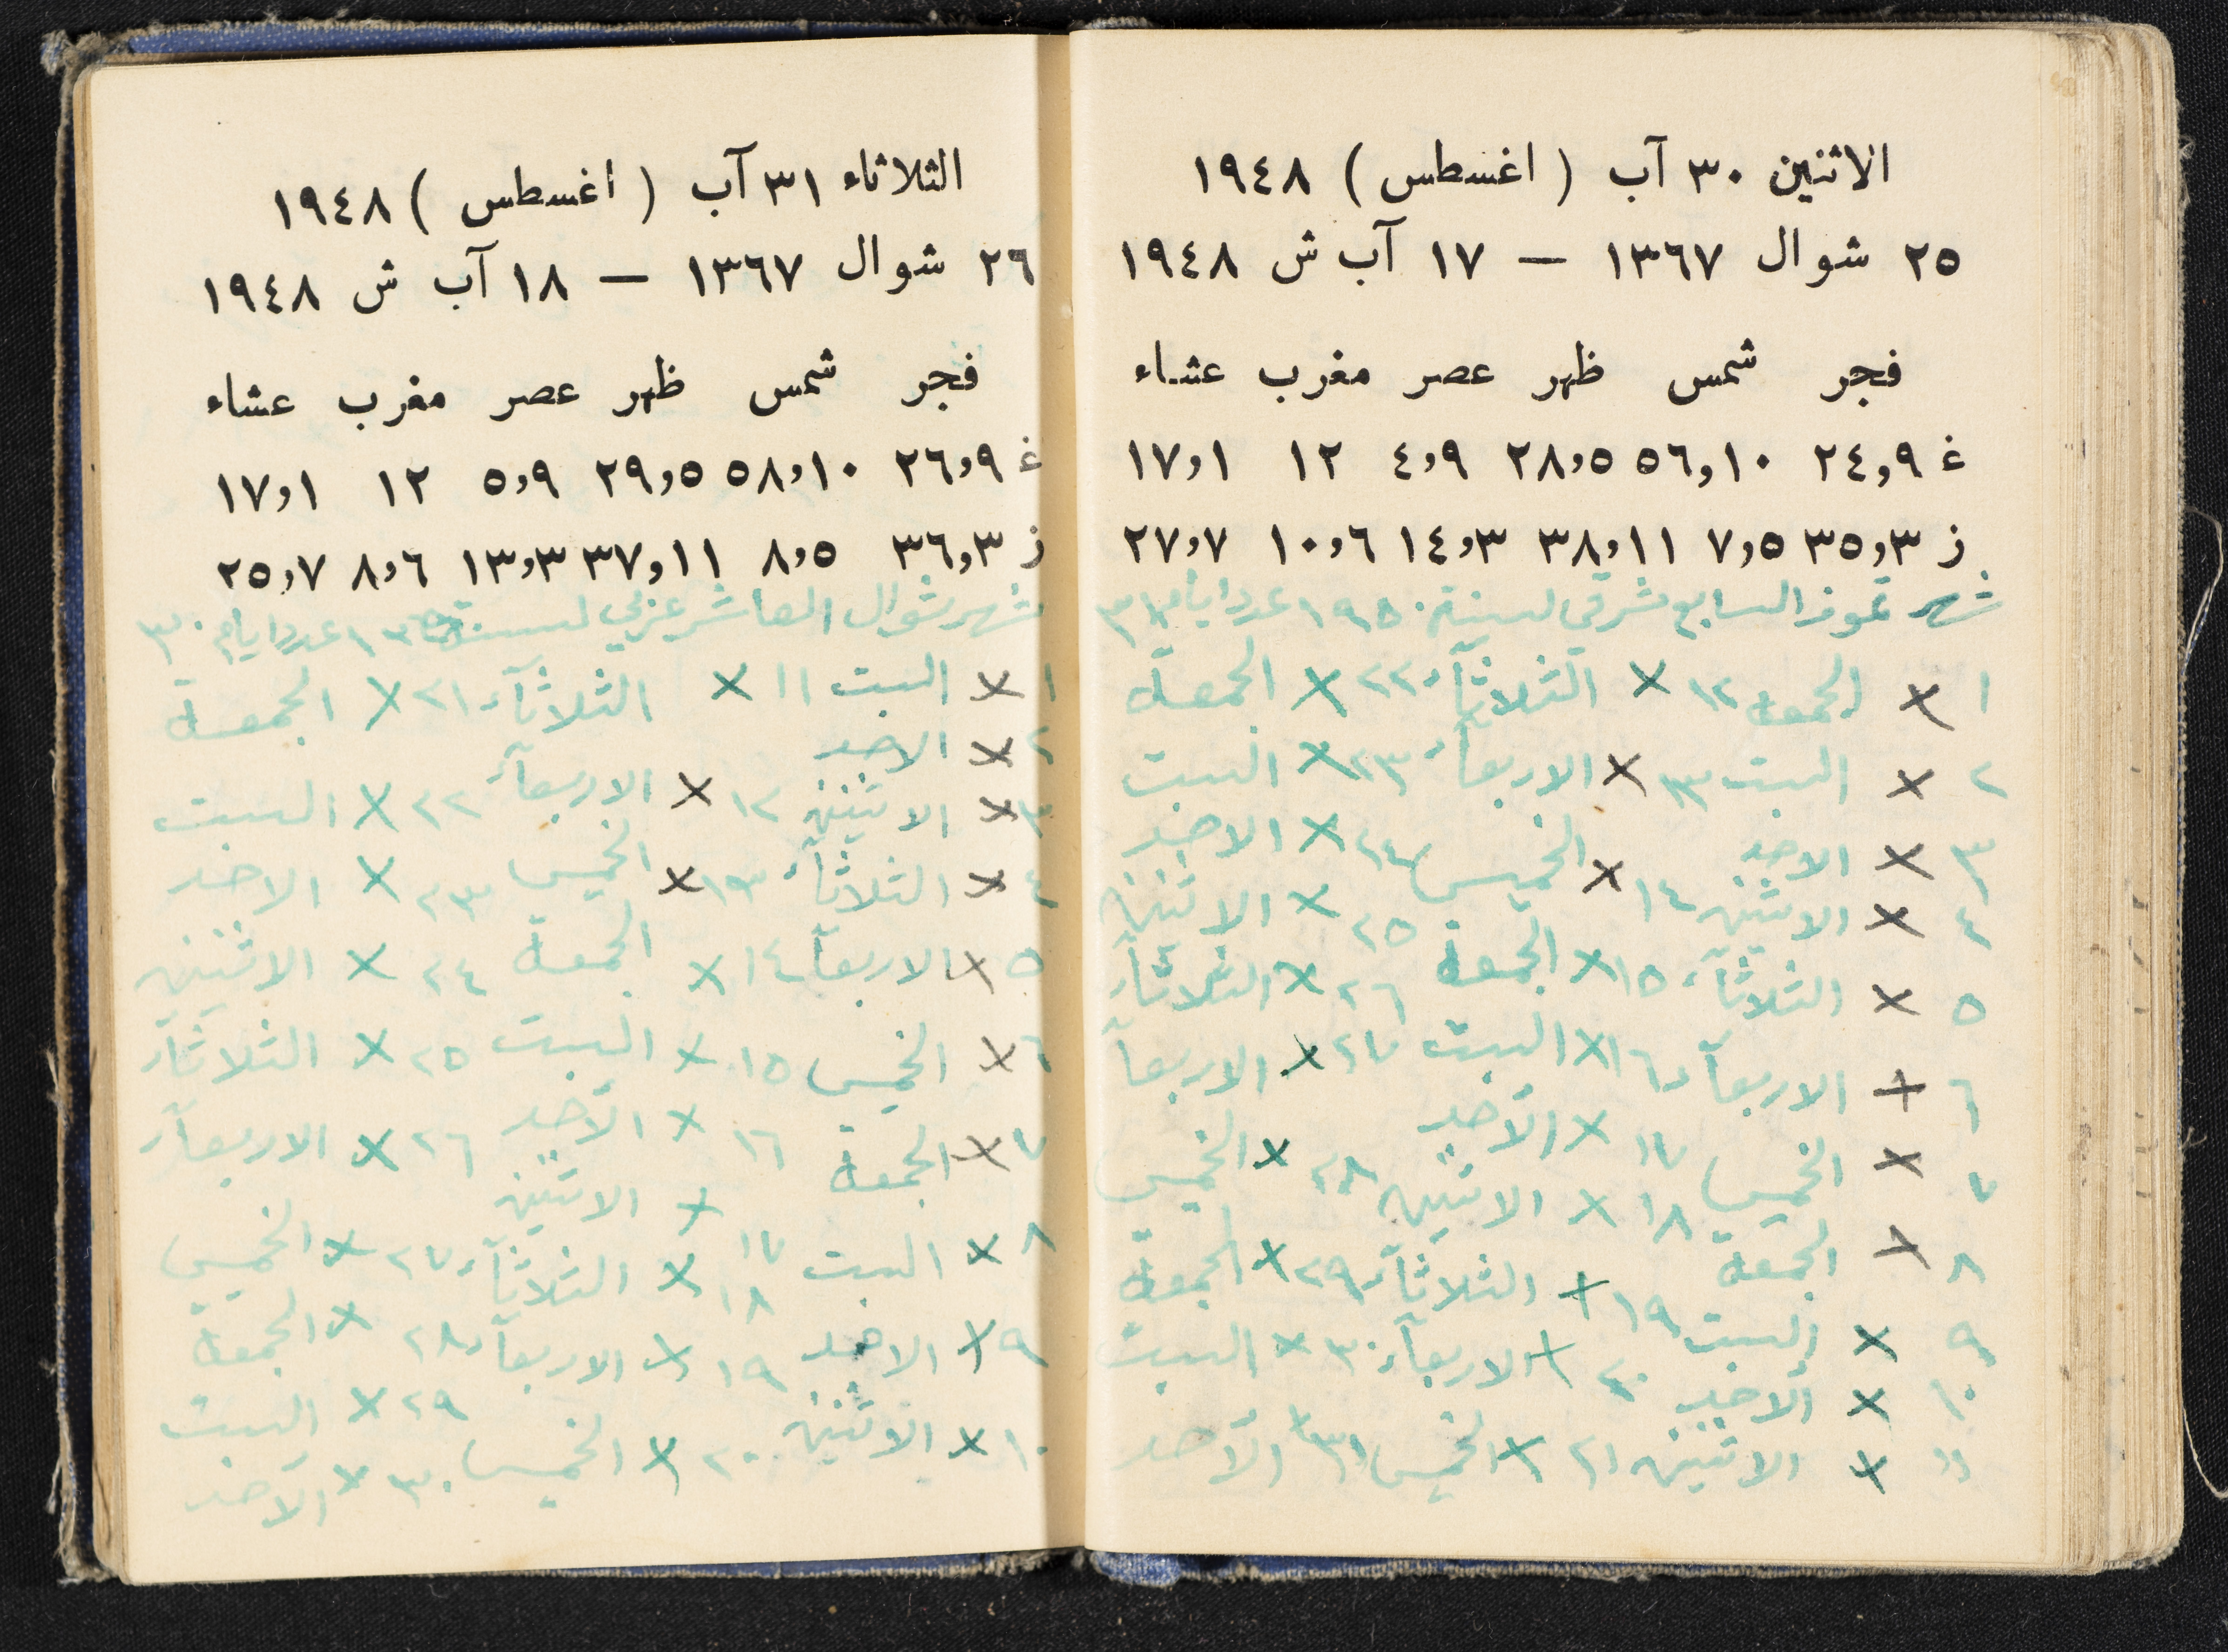 الاثنين ٣٠ آب ( اغسطس ) ١٩٤٨
٢٥ شوال ١٣٦٧ — ١٧ آب ش ١٩٤٨
فجر شمس ظهر عصر مغرب عشاء
غ ٢٤,٩ ٥٦,١٠ ٢٨,٥ ٤,٩ ١٢ ١٧,١
ز ٣٥,٣ ٧,٥ ٣٨,١١ ١٤,٣ ١٠,٦ ٢٧,٧
شهر تموز السابع شرقي لسنة ١٩٥٠ عدد ايام ٣١
١ × الجمعة ١٢ × الثلاثآء ٢٢ × الجمعة
٢ × السبت ١٣ × الاربعآء ٢٣ × السبت
٣ × الاحد ١٤ × الخميس ٢٤ × الاحد
٤ × الاثنين ١٥ × الجمعة ٢٥ × الاثنين
٥ × الثلاثآء ١٦ × السبت ٢٦ × الثلاثآء
٦ × الاربعآء ١٧ × الاحد ٢٧ × الاربعآ
٧ × الخميس ١٨ × الاثنين ٢٨ × الخميس
٨ × الجمعة ١٩ × الثلاثآء ٢٩ × الجمعة
٩ × السبت ٢٠ × الاربعآء ٣٠ × السبت
١٠ × الاحد ٢١ × الخميس ٣١ × الاحد
١١ × الاثنين
الثلاثاء ٣١ آب ( اغسطس ) ١٩٤٨
٢٦ شوال ١٣٦٧ — ١٨ آب ش ١٩٤٨
فجر شمس ظهر عصر مغرب عشاء
غ ٢٦,٩ ٥٨,١٠ ٢٩,٥ ٥,٩ ١٢ ١٧,١
ز ٣٦,٣ ٨,٥ ٣٧,١١ ١٣,٣ ٨,٦ ٢٥,٧
شهر شوال العاشر عربي لسنة عدد ايام ٣٠
١ × السبت ١١ × الثلاثآء ٢١ × الجمعة
٢ × الاحد ١٢ × الاربعآء ٢٢ × السبت
٣ × الاثنين ١٣ × الخميس ٢٣ × الاحد
٤ × الثلاثآء ١٤ × الجمعة ٢٤ × الاثنين
٥ × الاربعآ ١٥ × السبت ٢٥ × الثلاثآء
٦ × الخميس ١٦ × الاحد ٢٦ × الاربعآء
٧ × الجمعة ١٧ × الاثنين ٢٧ × الخميس
٨ × السبت ١٨ × الثلاثآء ٢٨ × الجمعة
٩ × الاحد ١٩ × الاربعآء ٢٩ × السبت
١٠ × الاثنين ٢٠ × الخميس ٣٠ × الاحد